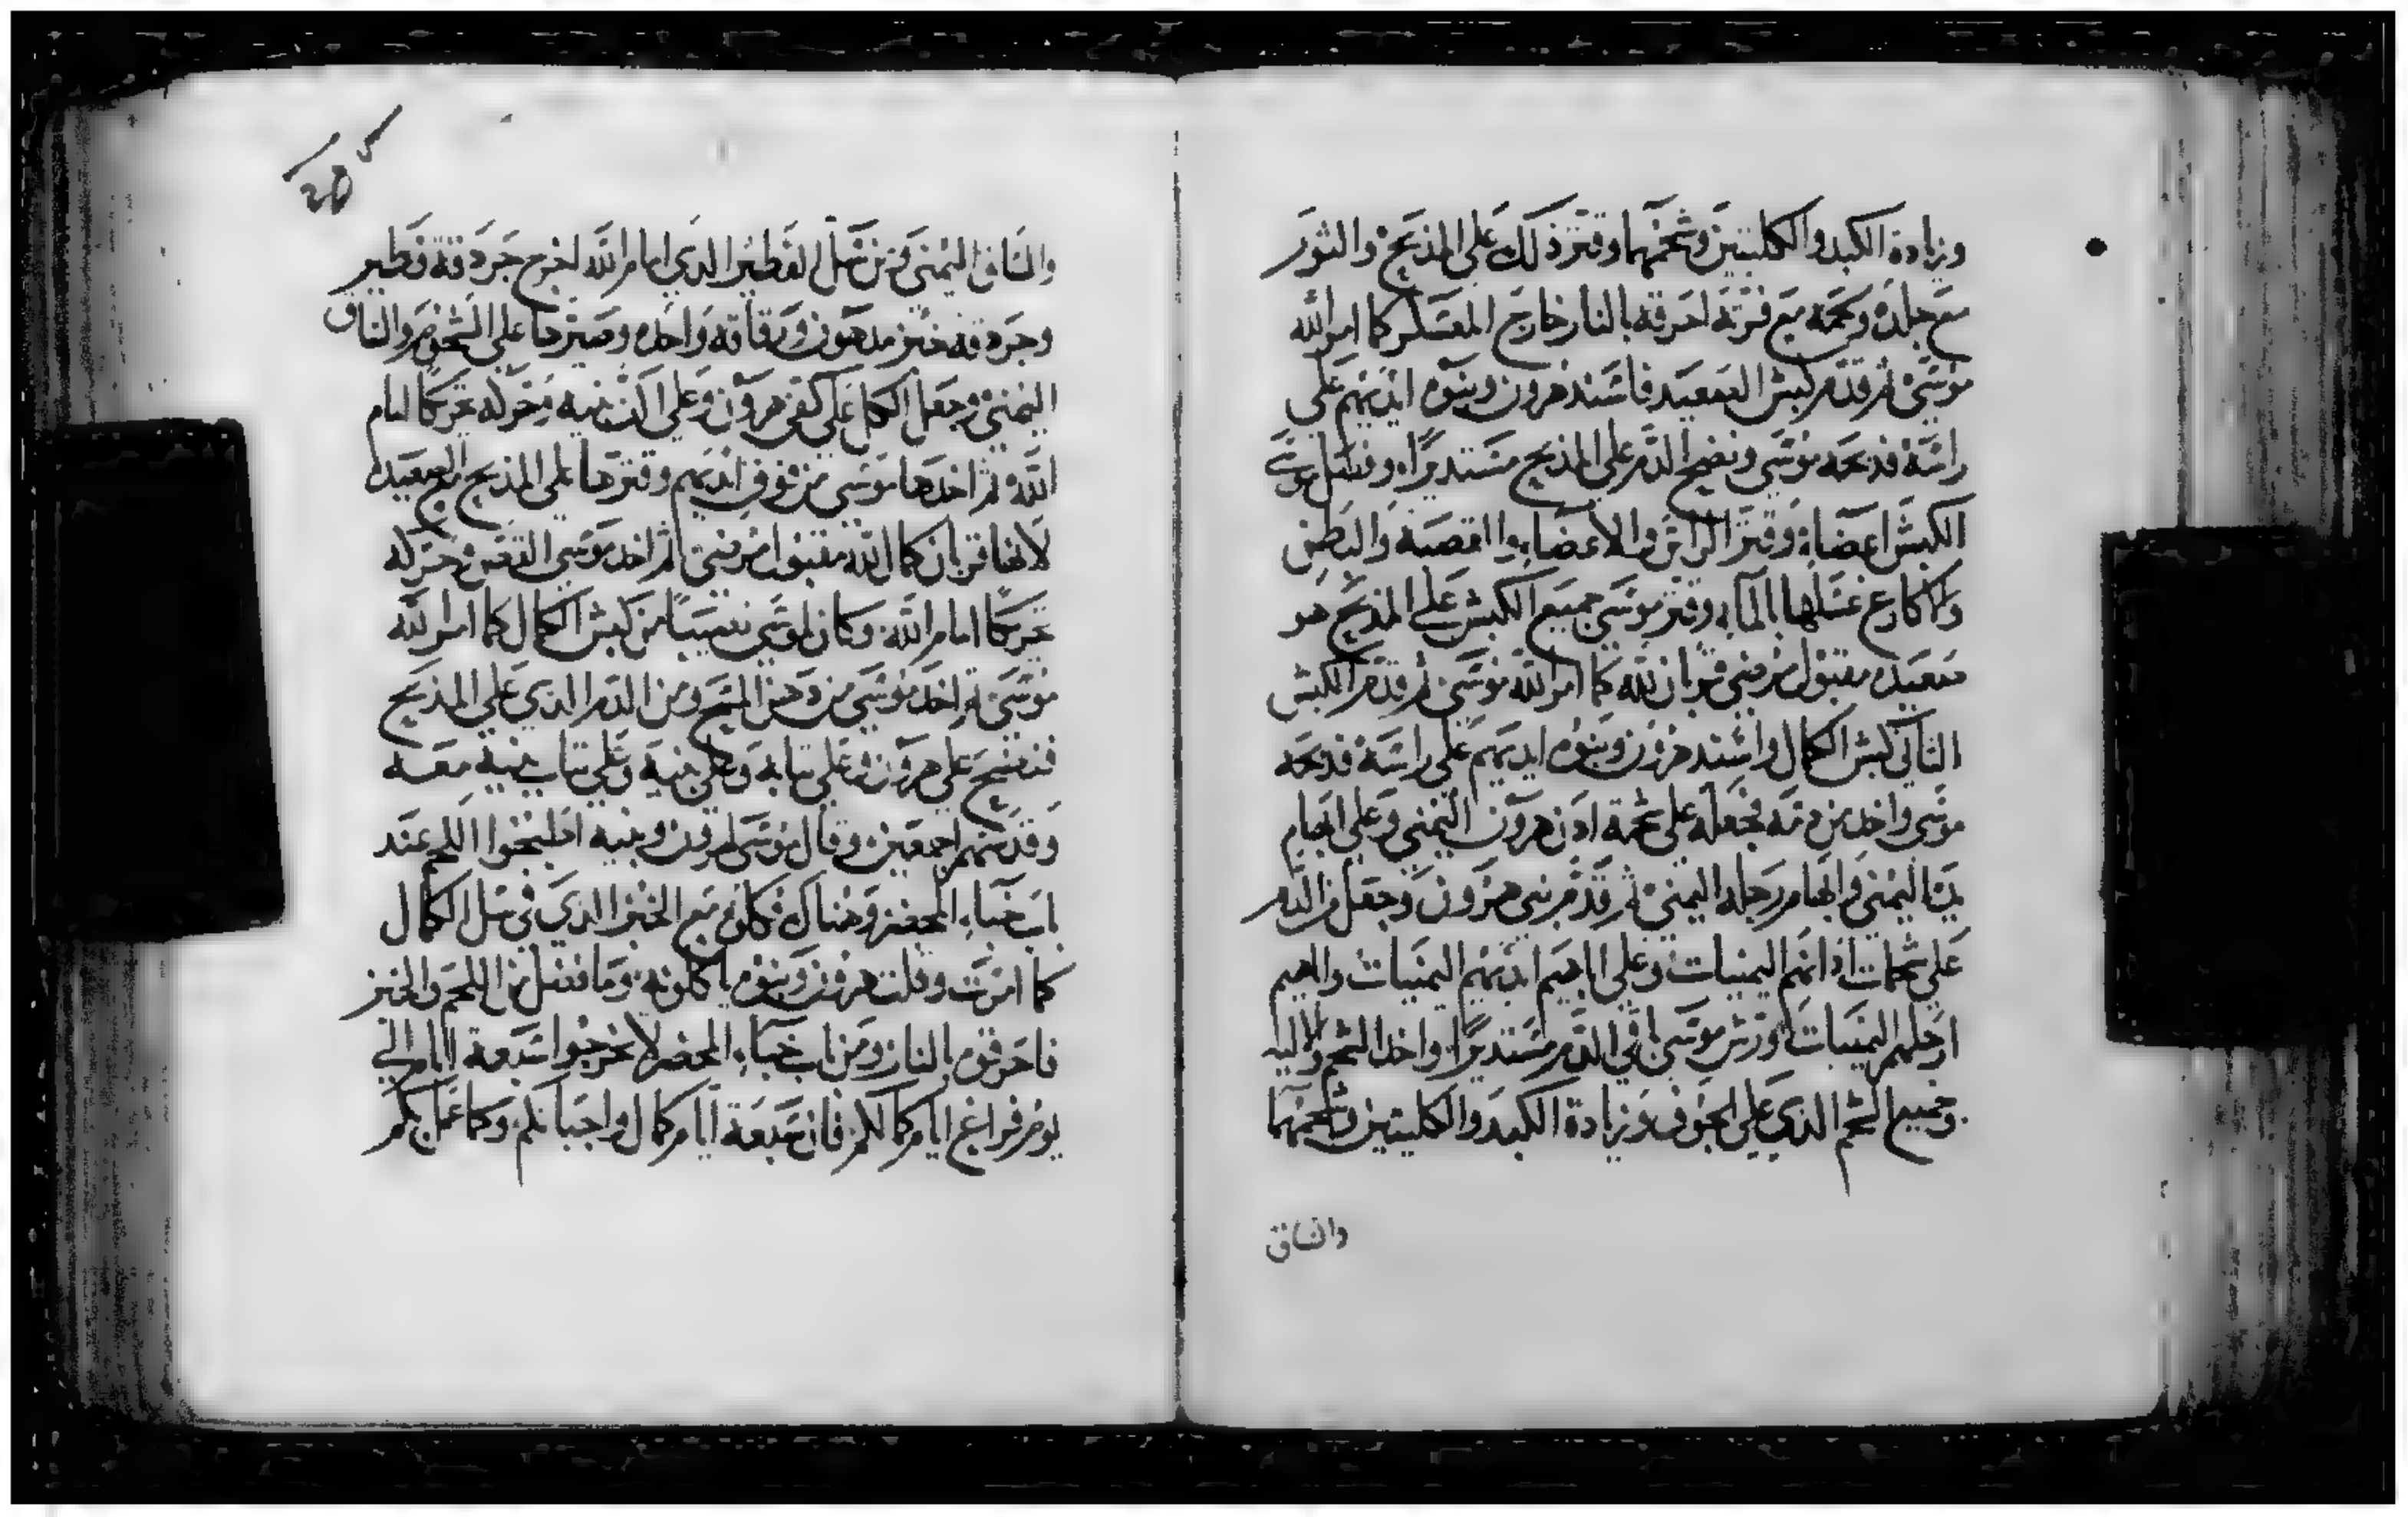 وزيادة الكبد والكليتين وشحمهما وقتر ذلك على المذبح والثور
مع جلده ولحمه مع فرثه احرقه بالنار خارج المعسكر كما امر الله
موسى ثم قدم كبش الصعيد فاسند هرون وبنوه ايديهم على
راسه فذبحه موسى ونضح الدم على المذبح مستديرا وفصل موسى
الكبش اعضاء وقتر الراس والاعضاء والقصبة والبطن
والاكارع غسلها بالماء وقتر موسى جميع الكبش على المذبح هو
صعيده مقبول مرضي قربان لله كما امر الله موسى ثم قدم الكبش
الثاني كبش الكمال واسند هرون وبنوه ايديهم على راسه فذبحه
موسى واخذ من دمه فجعله على شحمة اذن هرون اليمنى وعلى ابهام
يده اليمنى وابهام رجله اليمنى ثم قدم بني هرون وجعل من الدم
على شحمات اذانهم اليمنيات وعلى اباهيم ايديهم اليمنيات واباهيم
ارجلهم اليمنيات ورش موسى باقي الدم مستديرا واخذ الشحم والاليه
وجميع الشحم الذي على الجوف وزيادة الكبد والكليتين وشحمهما
والساق
والساق اليمنى ومن سل الفطير الذي امام الله اخرج جردقة فطير
وجردقه خبز مدهون ورقاقه واحده وصيرها على الشحوم والساق
اليمنى وجعل الكل على كفي هرون وعلى اكف بنيه فحركه تحريكا امام
الله ثم اخذها موسى من فوق ايديهم وقترها على المذبح مع الصعيده
لانها قربان كمال لله مقبول مرضي ثم اخذ موسى القص وحركه
تحريكا امام الله وكان لموسى نصيبا من كبش الكمال كما امر الله
موسى ثم اخذ موسى من دهن المسح ومن الدم الذي على المذبح
فنضح على هرون وعلى ثيابه وعلى بنيه وعلى ثياب بنيه معه
وقدسهم اجمعين وقال موسى لهرون وبنيه اطبخوا اللحم عند
باب خباء المحضر وهناك فكلوه مع الخبز الذي في سل الكمال
كما امرت وقلت هرون وبنوه ياكلونه وما فضل من اللحم والخبز
فاحرقوه بالنار ومن باب خباء المحضر لا تخرجوا سبعة ايام الى
يوم فراغ ايام كمالكم فان سبعة ايام كمال واجباتكم وكما عمل بكم